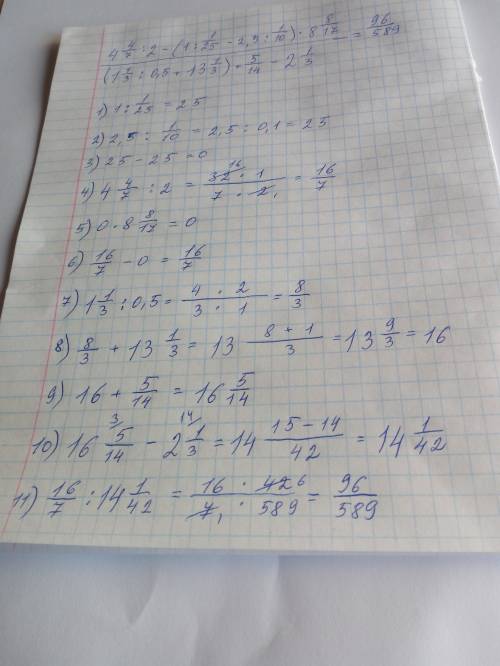 4 4/7 : 2 - (1 : 1/25 - 2,5 : 1/10) · 8 8/17 = 96/589
(1 1/3 : 0,5 + 13 1/3) + 5/14 - 2 1/3
1) 1 : 1/25 = 25
2) 2,5 : 1/10 = 2,5 : 0,1 = 25
3) 25 - 25 = 0
4) 4 4/7 : 2 = 32 16 · 1 / 7 · 2 1 = 16/7
5) 0 · 8 8/17 = 0
6) 16/7 - 0 = 16/7
7) 1 1/3 : 0,5 = 4 · 2 / 3 · 1 = 8/3
8) 8/3 + 13 1/3 = 13 8 + 1 / 3 = 13 9/3 = 16
9) 16 + 5/14 = 16 5/14
10) 16 5/14 3/ - 2 1/3 14/ = 14 15 - 14 / 42 = 14 1/42
11) 16/7 : 14 1/42 = 16 · 42 6 / 7 1 · 589 = 96/589